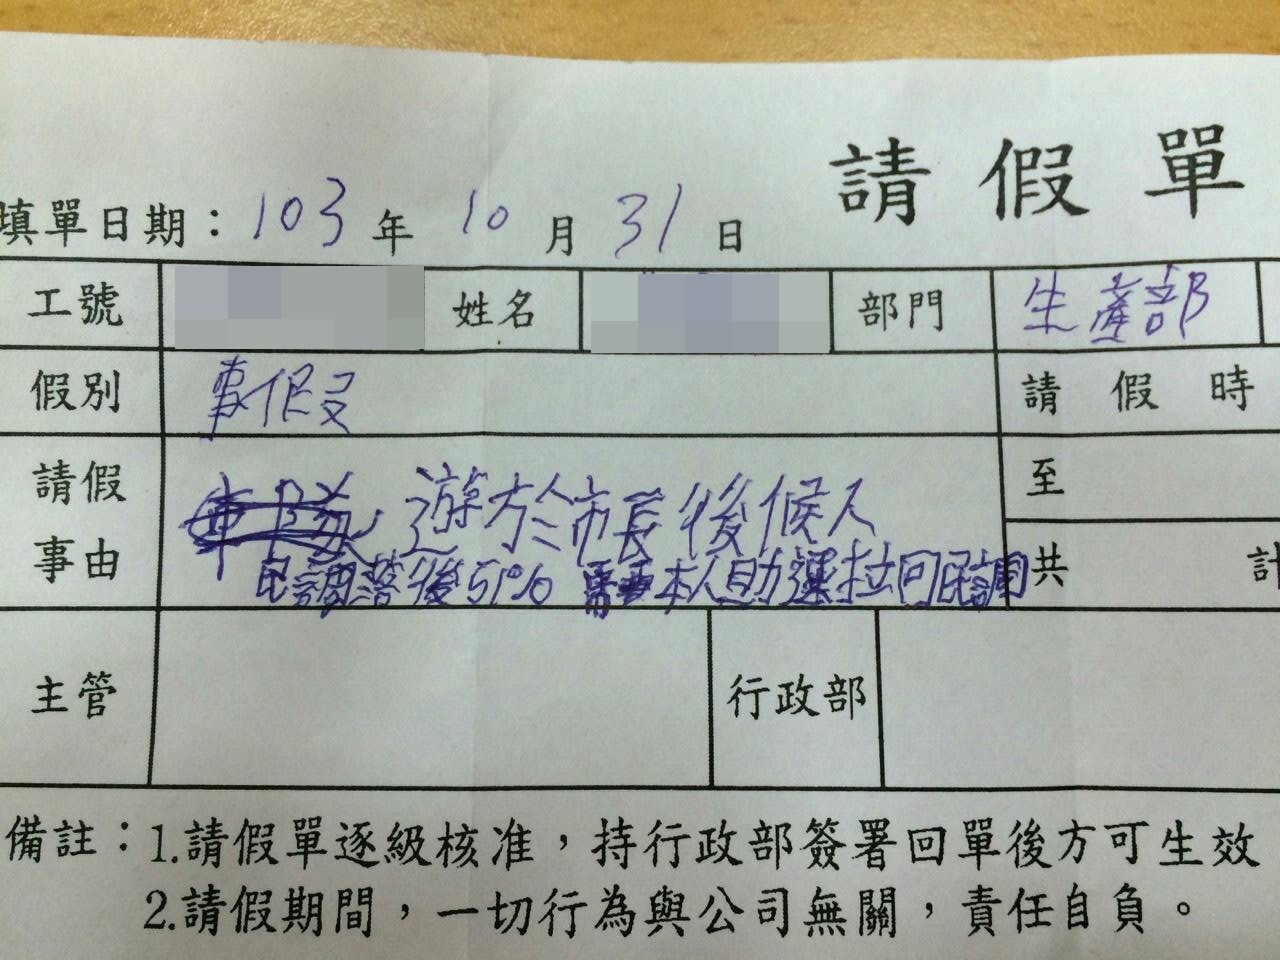 請假單
填單日期：103年10月31日
工號 姓名 部門 生產部
假別 事假 請假時
請假事由 遊於市長後候人
民調落後51% 需要本人助選拉回民調
至
共 計
主管 行政部
備註：1.請假單逐級核准，持行政部簽署回單後方可生效
2.請假期間，一切行為與公司無關，責任自負。